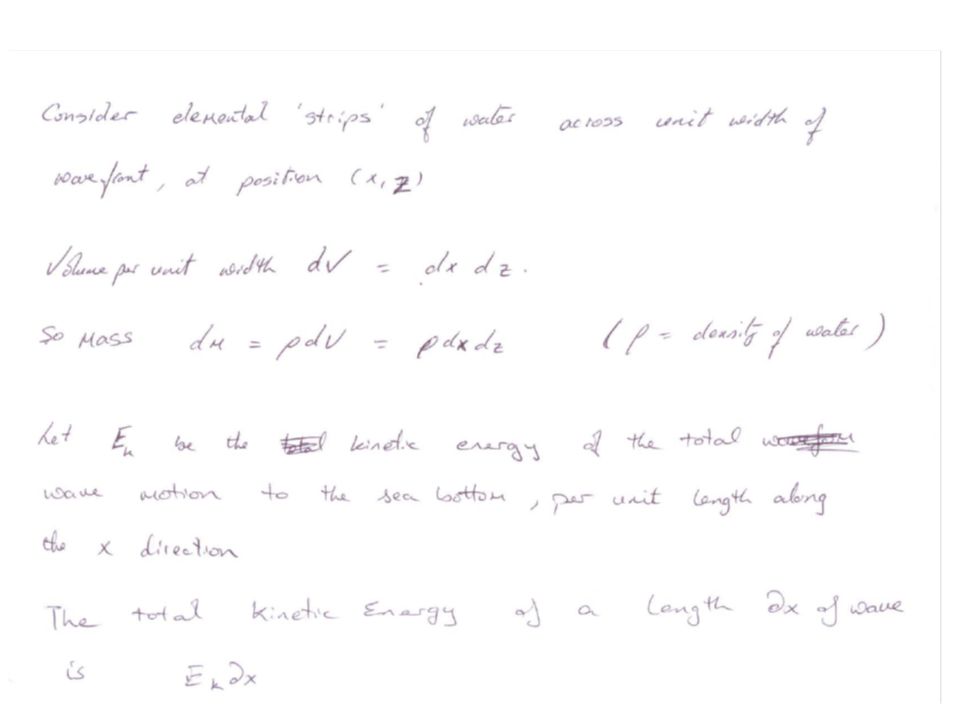 Consider elemental 'strips' of water across unit width of
wavefront, at position (x, z)
Volume per unit width dV = dx dz.
So Mass dM = ρdV = ρdxdz (ρ = density of water)
Let Eₖ be the total kinetic energy of the total waveform
wave motion to the sea bottom, per unit length along
the x direction
The total Kinetic Energy of a length ∂x of wave
is Eₖ∂x